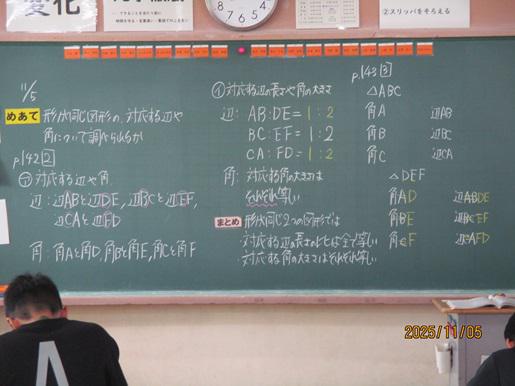 変化
②スリッパをそろえる
11/5
めあて 形が同じ図形の、対応する辺や
角について調べられるか
p.142 2
㋐対応する辺や角
辺:辺ABと辺DE,辺BCと辺EF,
辺CAと辺FD
角:角Aと角D,角Bと角E,角Cと角F
㋑対応する辺の長さや角の大きさ
辺:AB:DE=1:2
BC:EF=1:2
CA:FD=1:2
角:対応する角の大きさは
それぞれ等しい
まとめ 形が同じ2つの図形では
・対応する辺の長さの比は全て等しい
・対応する角の大きさはそれぞれ等しい
p.143 3
△ABC
角A 辺AB
角B 辺BC
角C 辺CA
△DEF
角AD 辺ABDE
角BE 辺BCEF
角CF 辺CAFD
2025/11/05